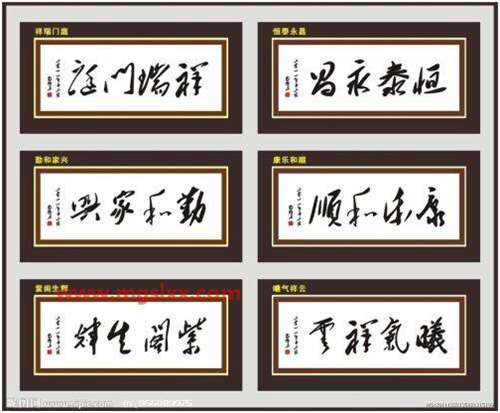 祥瑞门庭
祥瑞門庭
恒泰永昌
恒泰永昌
勤和家兴
勤和家興
康乐和顺
康乐和順
紫阁生辉
紫閣生輝
曦气祥云
曦氣祥雲
www.mgslxx.com